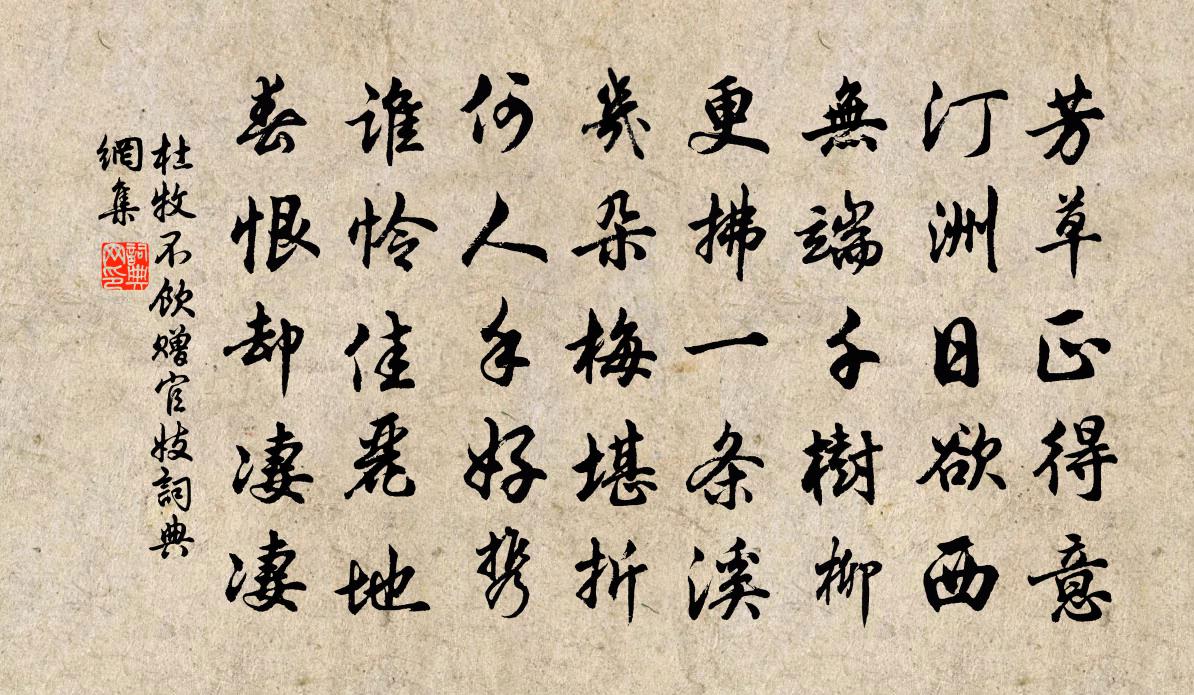 芳草正得意
汀洲日欲西
無端千樹柳
更拂一条溪
幾朵梅堪折
何人手好携
誰怜佳麗地
春恨却凄凄
杜牧不飲贈官妓詞典
網集
詞典
网印